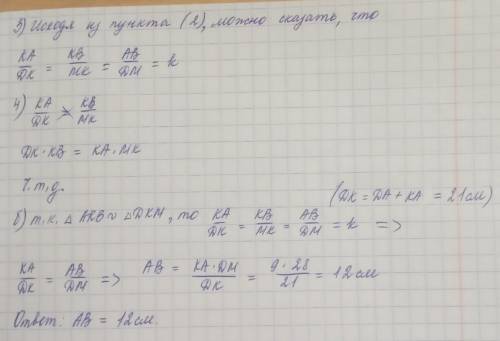 3) Исходя из пункта (2), можно сказать, что
KA/DK = KB/MK = AB/DM = k
4) KA/DK = KB/MK
DK · KB = KA · MK
Ч.т.д.
(DK = DA + KA = 21см)
б) т.к. △AKB ~ △DKM, то KA/DK = KB/MK = AB/DM = k =>
KA/DK = AB/DM => AB = KA·DM/DK = 9·28/21 = 12см
Ответ: AB = 12см.